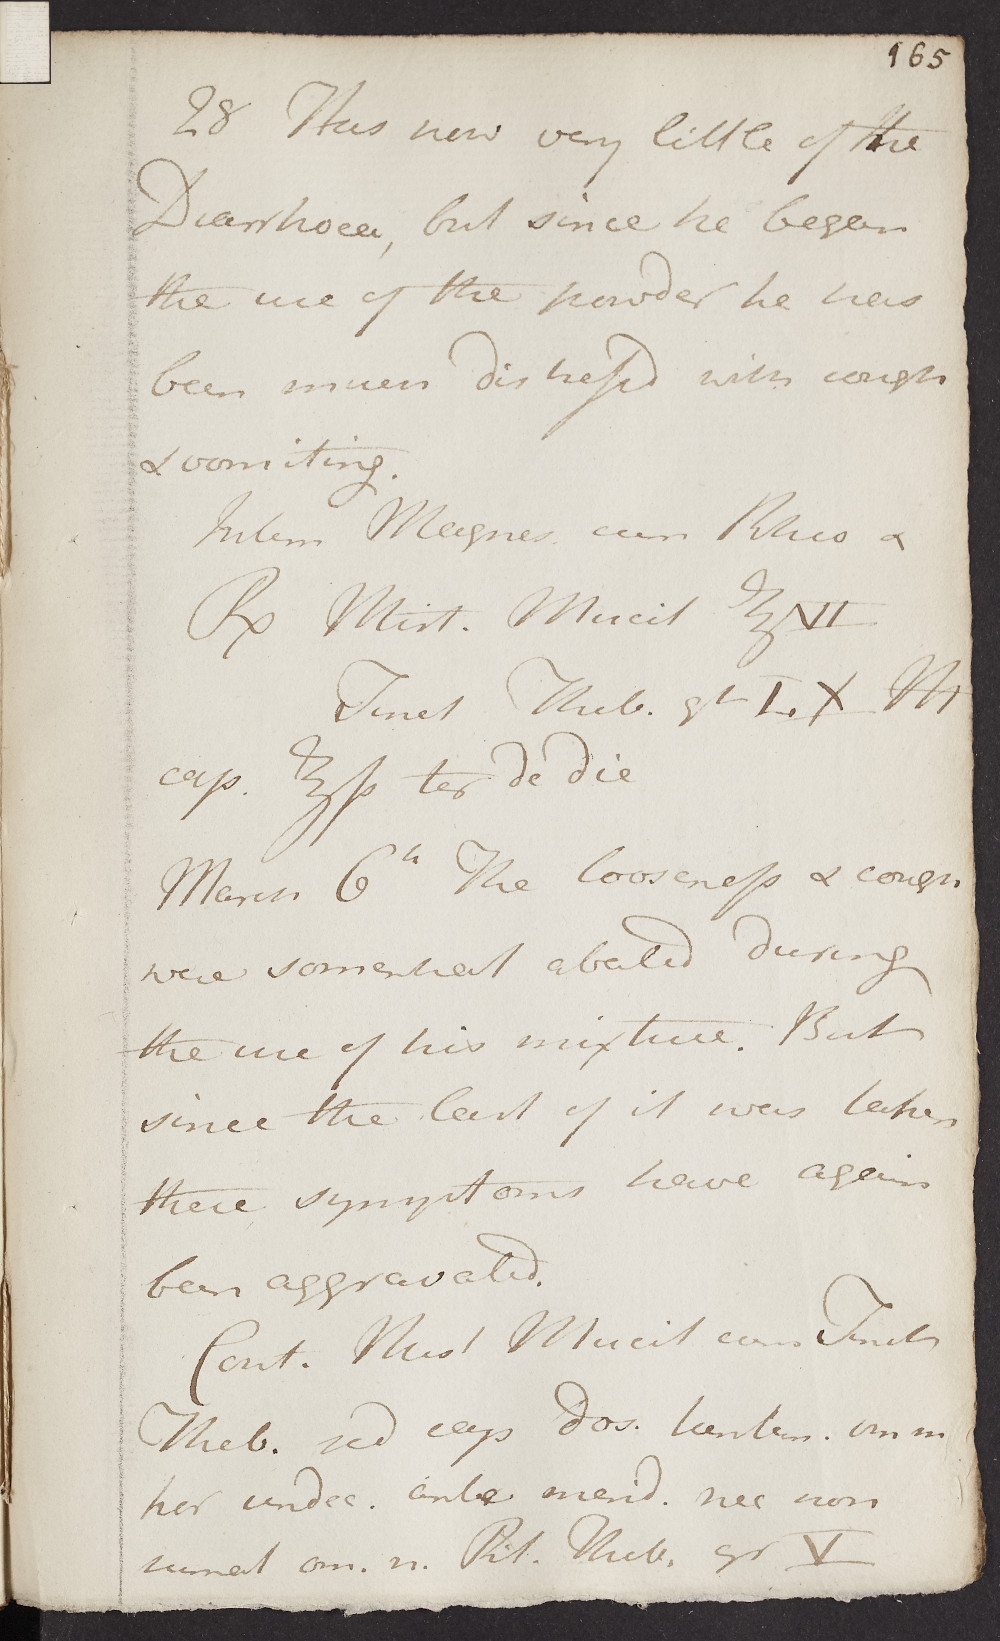 165
28 Has now very little of the
Diarrhoea, but since he began
the use of the powder he has
been much distressd with cough
& vomiting.
Magnes. cum Rheo &
℞ Mist. Mucil ℥ VII
Tinct Theb. gt LX M
cap. ℥ss ter de die
March 6th The looseness & cough
were somewhat abated during
the use of his mixture. But
since the last of it was taken
these symptoms have again
been aggravated.
Cont. Mist Mucil cum Tinct
Theb. sed cap dos. tantum. omn
hor undec. ante merid. nec non
sumat om. n. Pil. Theb. gr V